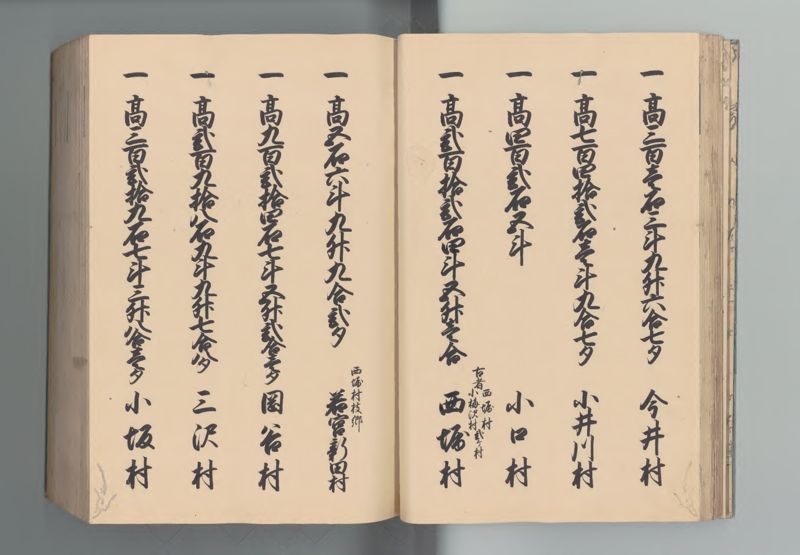 一 高三百壱石三斗九升六合七夕 今井村
一 高七百四拾弐石壱斗九合七夕 小井川村
一 高四百弐石五斗 小口村
一 高弐百拾弐石四斗五升壱合 西堀村
古者 西堀村
小梅沢村 弐ケ村
一 高五石六斗九升九合弐夕 若宮新田村
西堀村枝郷
一 高九百弐拾四石七斗五升弐合壱夕 岡谷村
一 高弐百九拾八石九斗九升七合八夕 三沢村
一 高三百弐拾九石七斗三升八合壱夕 小坂村